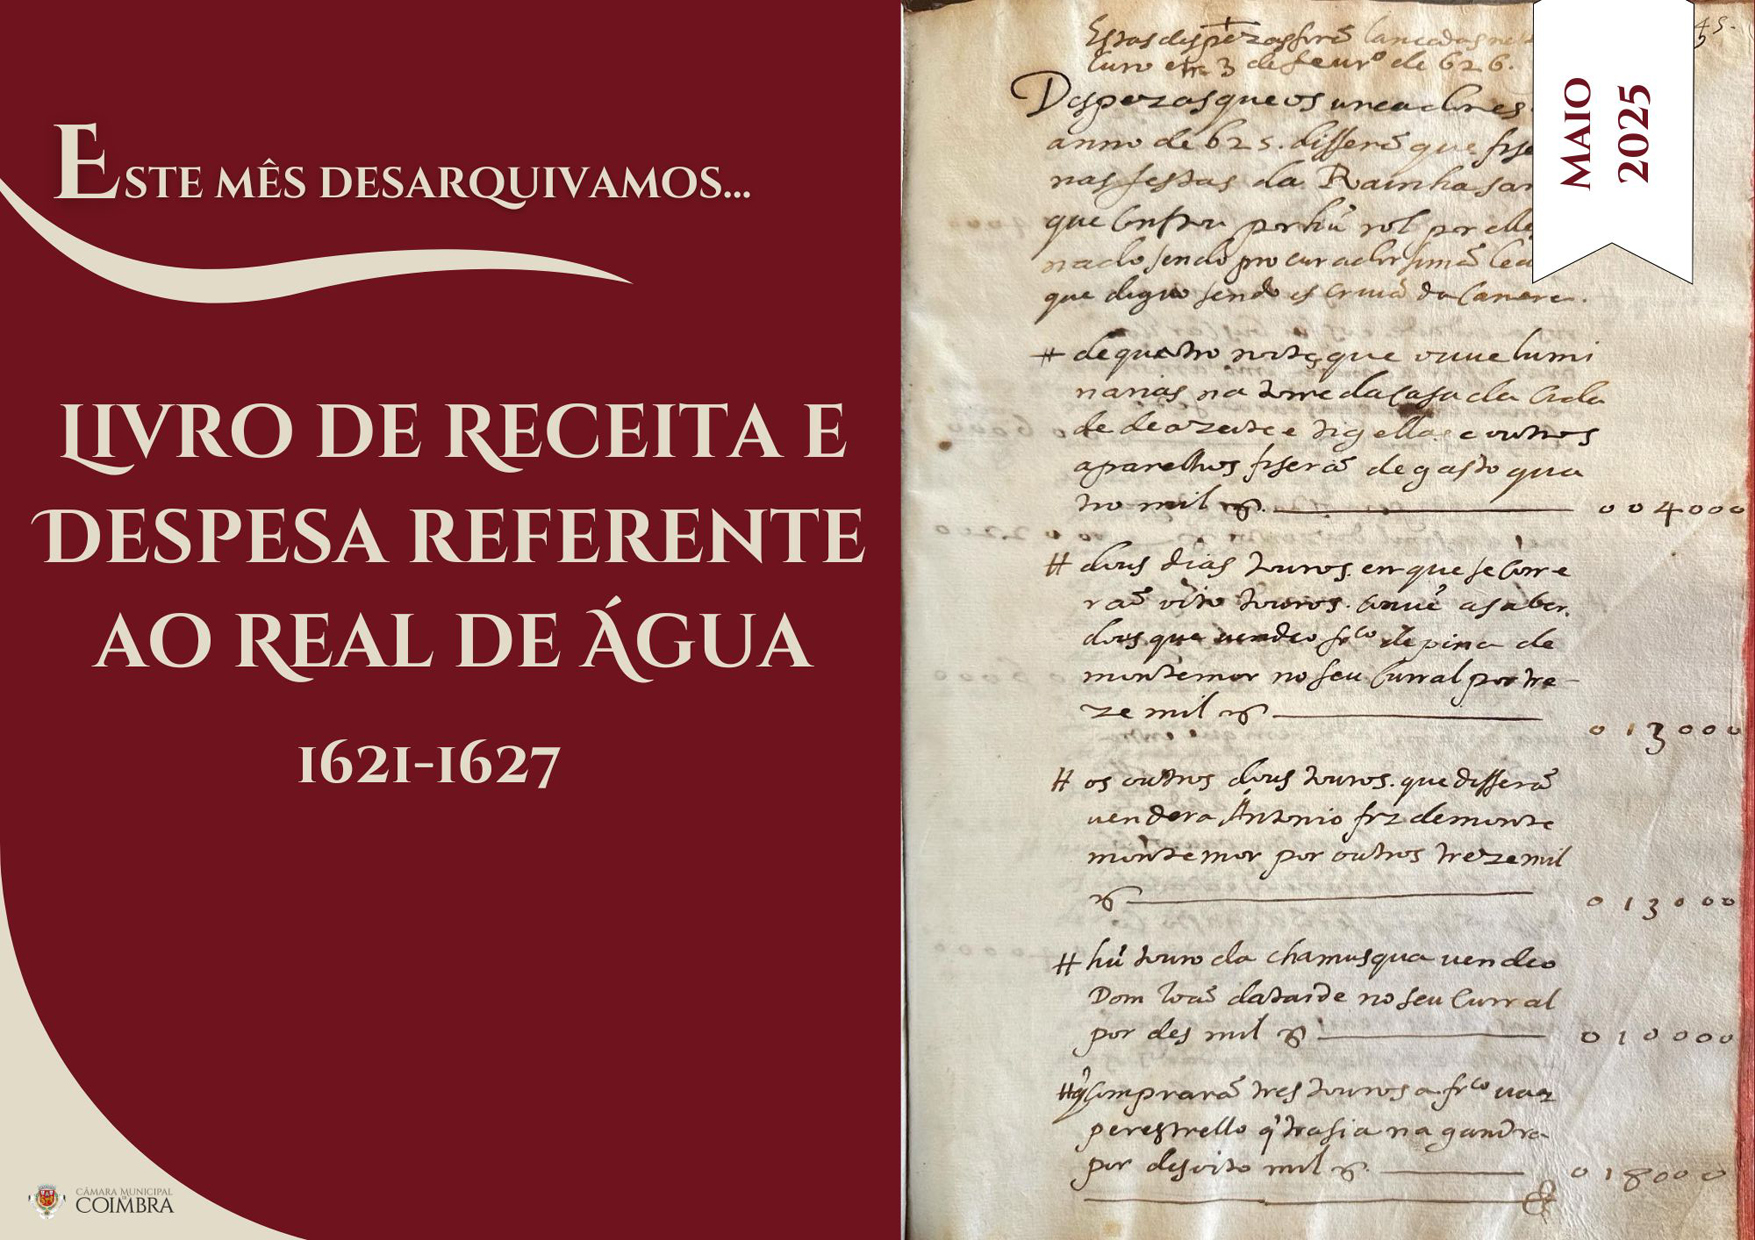 ESTE MÊS DESARQUIVAMOS...
LIVRO DE RECEITA E
DESPESA REFERENTE
AO REAL DE ÁGUA
1621-1627
CÂMARA MUNICIPAL
COIMBRA
MAIO
2025
45.
Estas despezas forã lancadas neste
liuro em 3 de feurº de 626.
Despezas que os ureadores
anno de 625. disserã que fize
nas festas da Rainha san
que Constou por hũ rol por elles
nado sendo procurador simã lea
que digno sendo escriuã da Camara.
# de quatro noites que ouue lumi
narias na torre da casa da Cida
de de azeite e tigellas e outros
aparelhos fiserã de gasto qua
tro mil rs. 004000
# dous dias touros. en que se Corre
rã oito touros. Conuẽ a saber.
dous que uendeo frco de pina de
montemor no seu Curral por tre-
ze mil rs 013000
# os outros dous touros. que disserã
uendera Antonio frz de monte
montemor por outros treze mil
rs 013000
# hũ touro da chamusqua uendeo
Dom Ioaõ dataide no seu Curral
por des mil rs 010000
# q Comprarã tres touros a frco uaz
perestrello q̃ trasia na gandra
por desoito mil rs. 018000